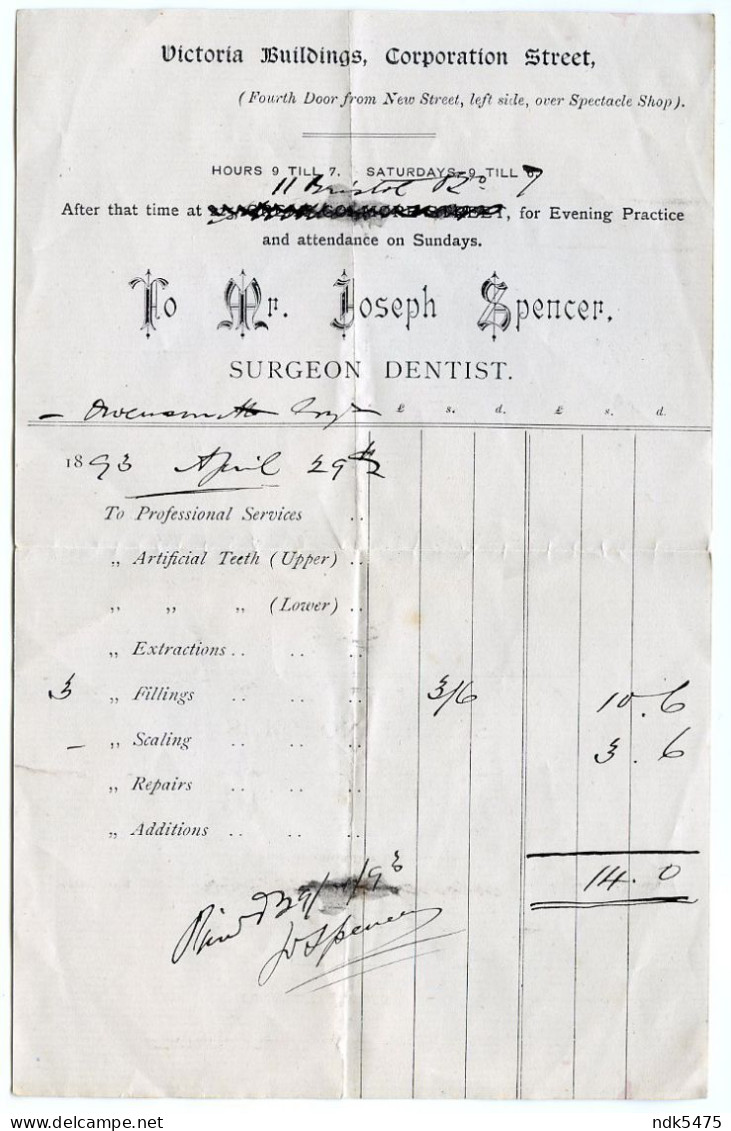 Victoria Buildings, Corporation Street,
(Fourth Door from New Street, left side, over Spectacle Shop).
HOURS 9 TILL 7. SATURDAYS 9 TILL 7
11 Bristol Rd
After that time at , for Evening Practice
and attendance on Sundays.
To Mr. Joseph Spencer,
SURGEON DENTIST.
£ s. d. £ s. d.
1893 April 29th
To Professional Services ..
„ Artificial Teeth (Upper) ..
„ „ „ (Lower) ..
„ Extractions .. .. ..
3 „ Fillings .. .. .. 3/6 10.6
– „ Scaling .. .. .. 3.6
„ Repairs .. .. ..
„ Additions .. .. ..
14.0
J Spencer
ndk5475